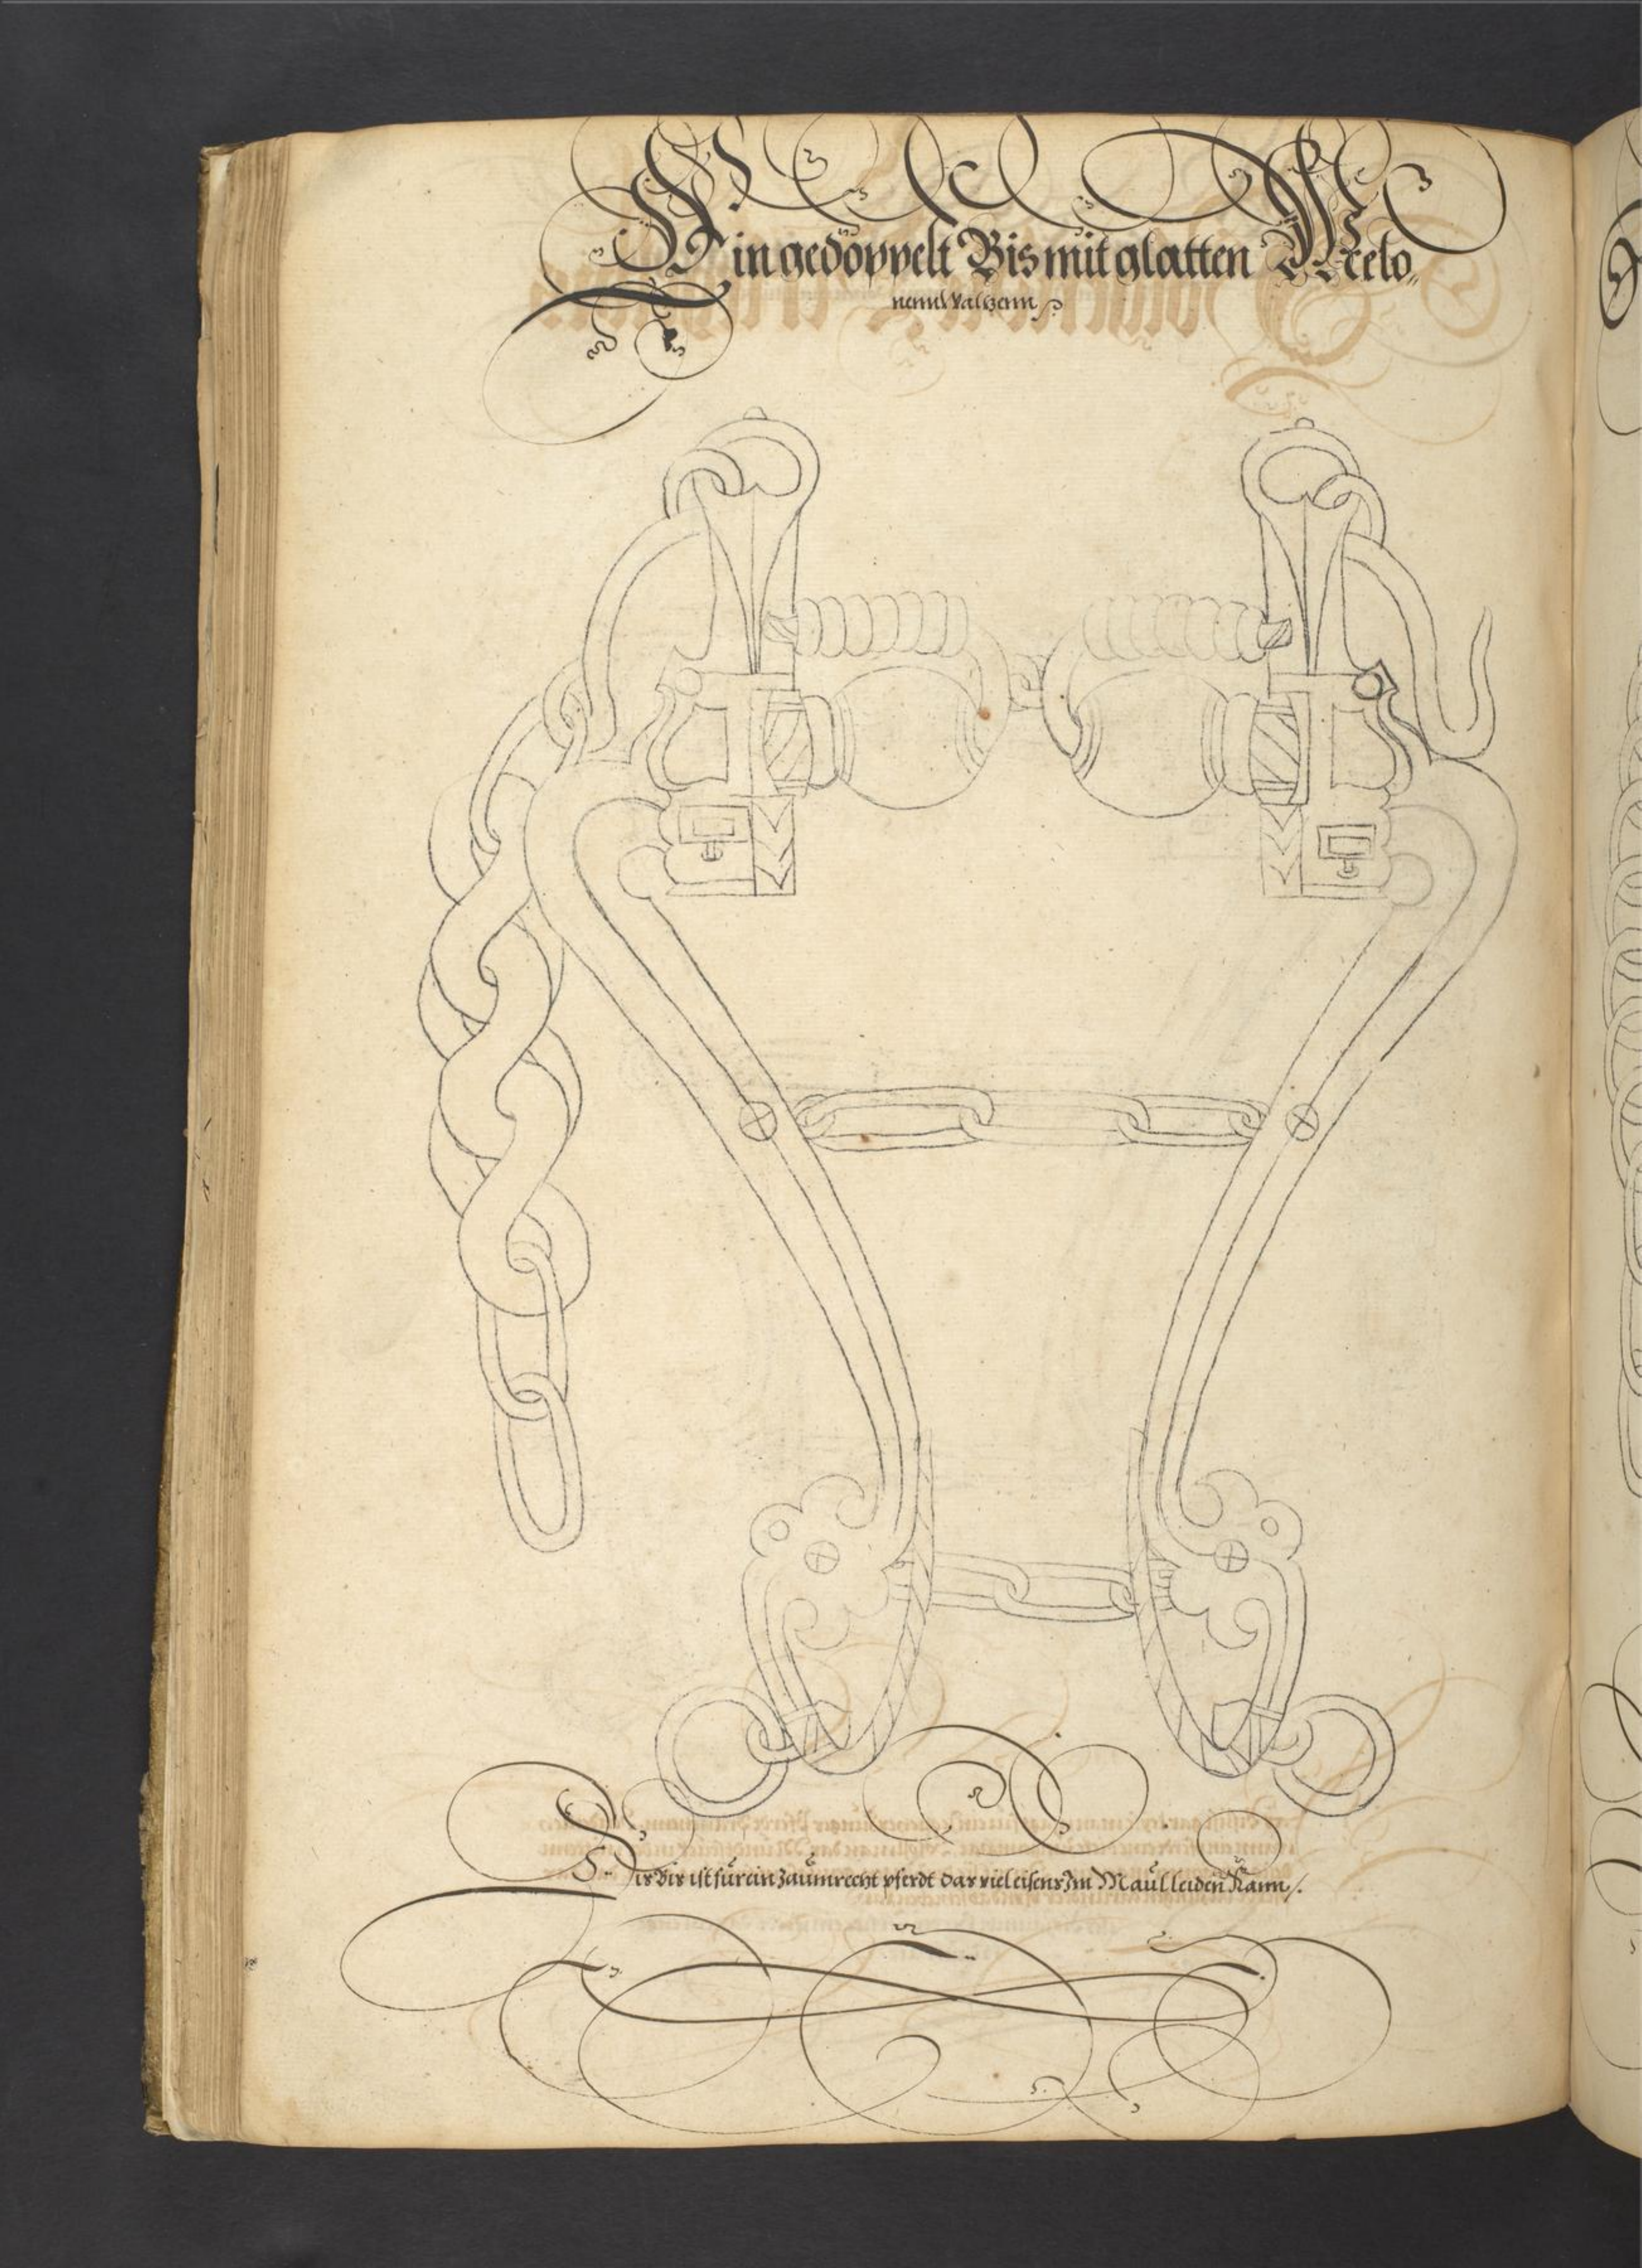 Ein gedoppelt Bis mit glatten Melo⸗
nenn Waltzenn
Dis Bis ist für ein Zaumrecht pferdt das viel eisens Im Maul leiden kann /.